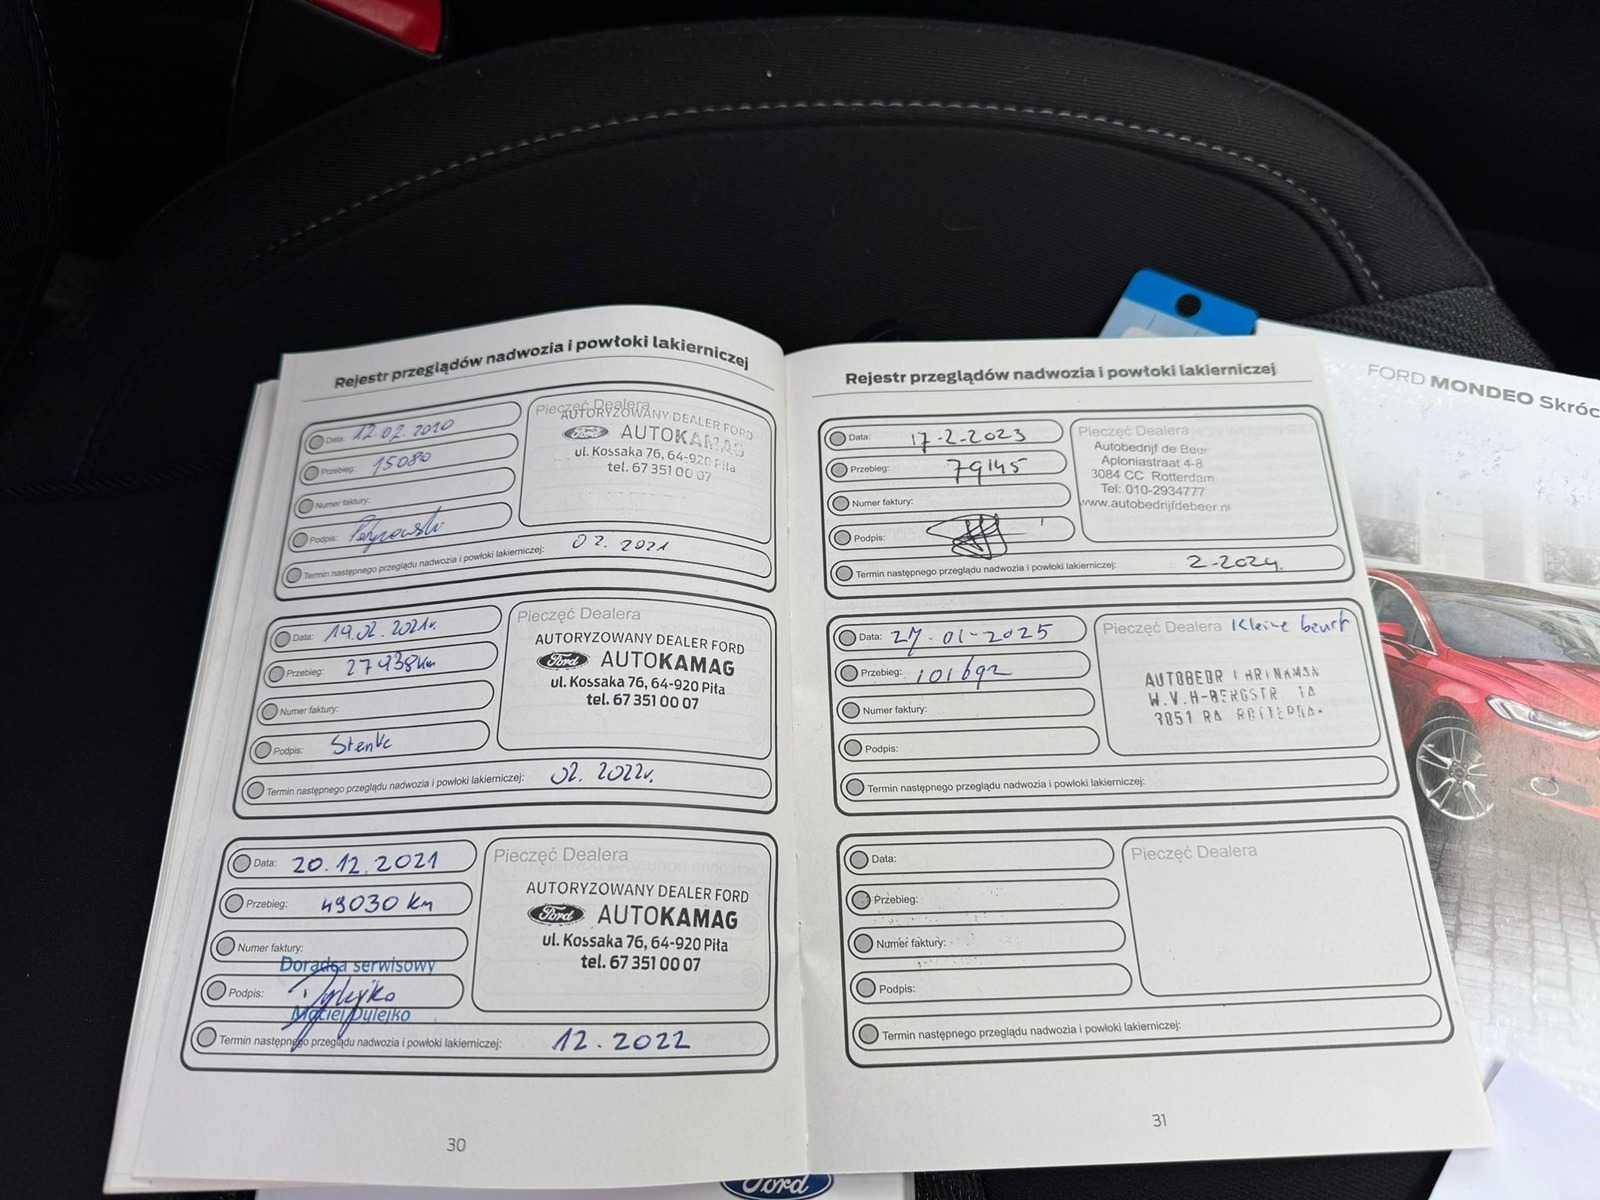 Rejestr przeglądów nadwozia i powłoki lakierniczej
Data: 12.02.2020
Przebieg: 15080
Numer faktury:
Podpis:
Termin następnego przeglądu nadwozia i powłoki lakierniczej: 02. 2021
Pieczęć Dealera
AUTORYZOWANY DEALER FORD
Ford AUTOKAMAG
ul. Kossaka 76, 64-920 Piła
tel. 67 351 00 07
Data: 19.02.2021r.
Przebieg: 27938km
Numer faktury:
Podpis:
Termin następnego przeglądu nadwozia i powłoki lakierniczej: 02. 2022r.
Pieczęć Dealera
AUTORYZOWANY DEALER FORD
Ford AUTOKAMAG
ul. Kossaka 76, 64-920 Piła
tel. 67 351 00 07
Data: 20.12.2021
Przebieg: 49030 km
Numer faktury:
Doradca serwisowy
Podpis:
Maciej Dylejko
Termin następnego przeglądu nadwozia i powłoki lakierniczej: 12.2022
Pieczęć Dealera
AUTORYZOWANY DEALER FORD
Ford AUTOKAMAG
ul. Kossaka 76, 64-920 Piła
tel. 67 351 00 07
30
Rejestr przeglądów nadwozia i powłoki lakierniczej
Data: 17-2-2023
Przebieg: 79145
Numer faktury:
Podpis:
Termin następnego przeglądu nadwozia i powłoki lakierniczej: 2-2024.
Pieczęć Dealera
Autobedrijf de Beer
Aploniastraat 4-8
3084 CC Rotterdam
Tel: 010-2934777
www.autobedrijfdebeer.nl
Data: 27-01-2025
Przebieg: 101692
Numer faktury:
Podpis:
Termin następnego przeglądu nadwozia i powłoki lakierniczej:
Pieczęć Dealera Kleine beurt
W.V.H-BERGSTR
3051 RA
Data:
Przebieg:
Numer faktury:
Podpis:
Termin następnego przeglądu nadwozia i powłoki lakierniczej:
Pieczęć Dealera
31
FORD MONDEO Skróc
Ford